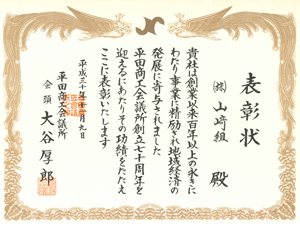 表彰状
㈱山﨑組 殿
貴社は創業以来百年以上の永きに
わたり事業に精励され地域経済の
発展に寄与されました
平田商工会議所創立七十周年を
迎えるにあたりその功績をたたえ
ここに表彰いたします
平成三十年十一月九日
平田商工会議所
会頭 大谷厚郎